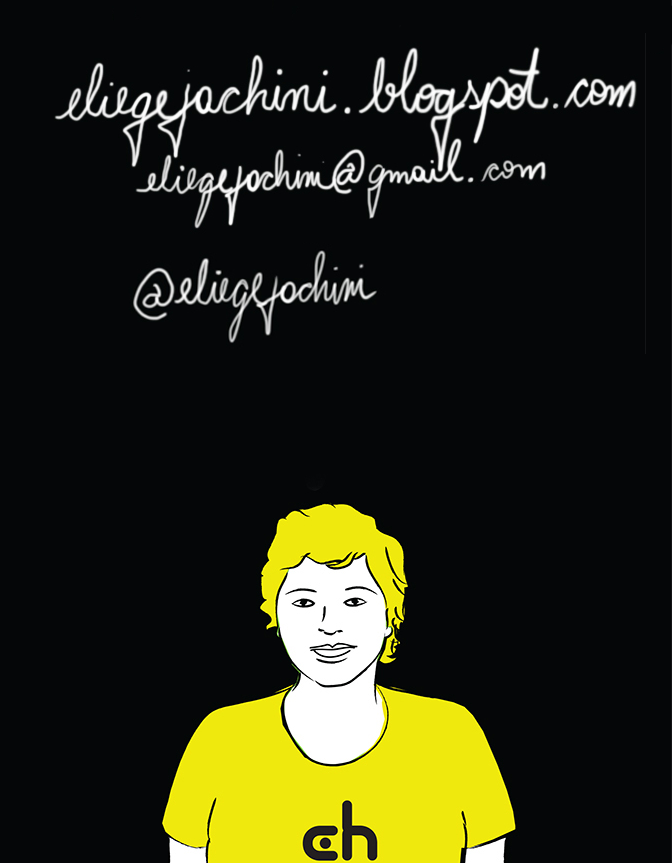 eliegejachini.blogspot.com
eliegejochini@gmail.com
@eliegejochini
ch